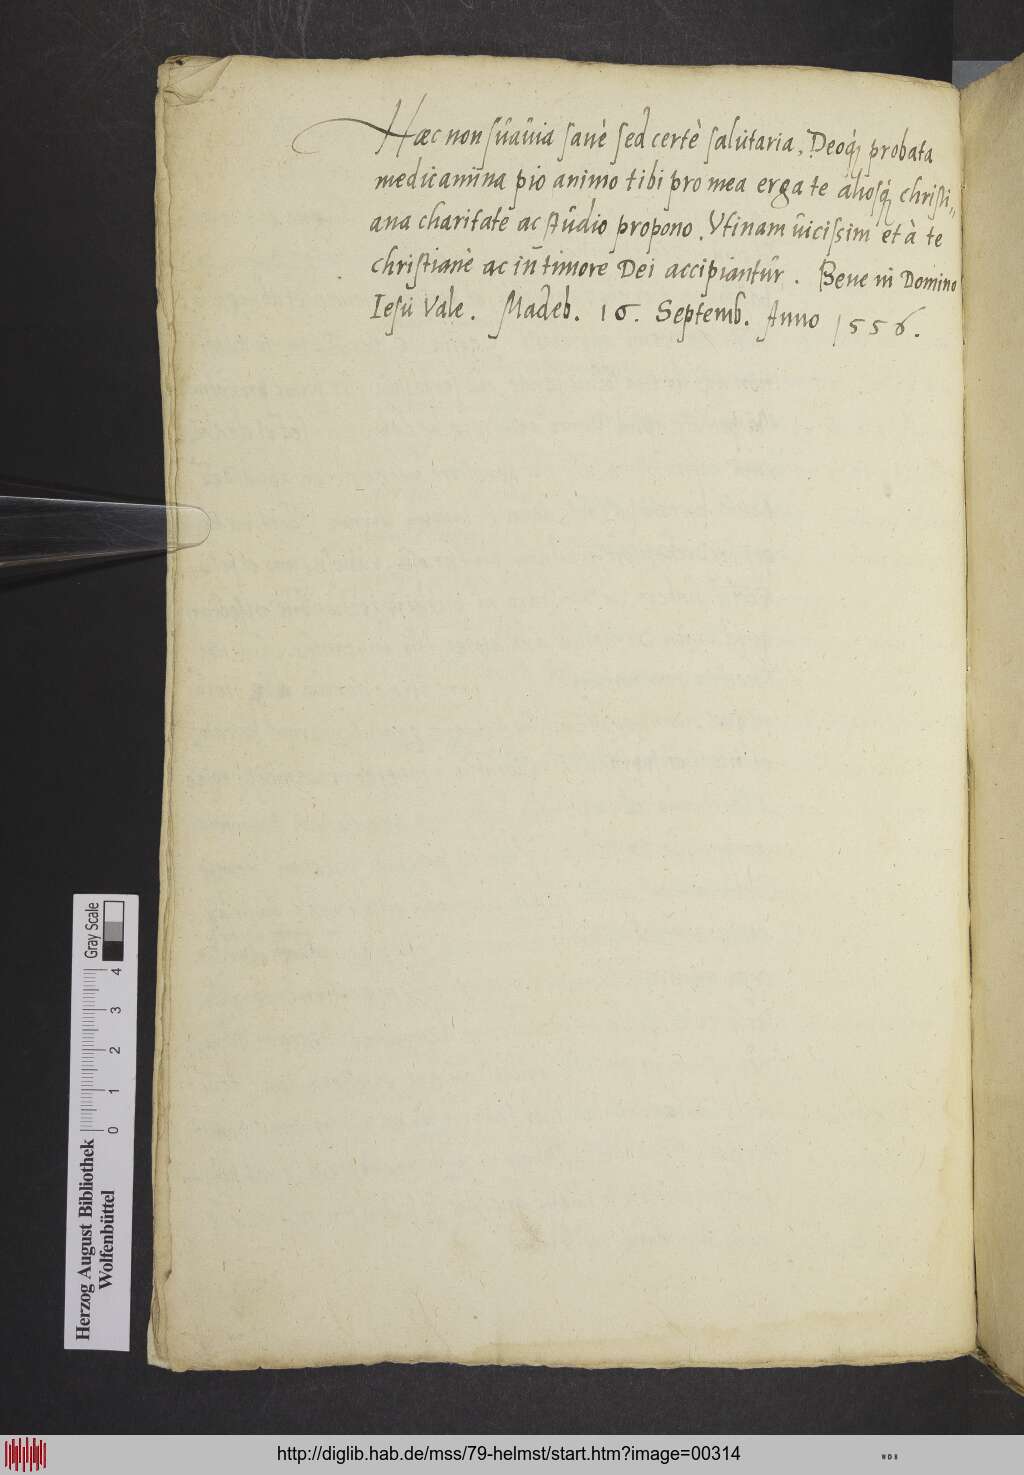 Hæc non sũavia sanè sed certè salũtaria, Deoq́ꝫ probata
medicamina pio animo tibi pro mea erga te aliosq́ꝫ christi„
ana charitate ac stũdio propono. Vtinam ũicissim et à te
christianè ac in timore Dei accipiantũr. Bene in Domino
Iesũ Vale. Madeb. 16. Septemb. Anno 1556.
Gray Scale
0 1 2 3 4
Herzog August Bibliothek
Wolfenbüttel
http://diglib.hab.de/mss/79-helmst/start.htm?image=00314
WDB